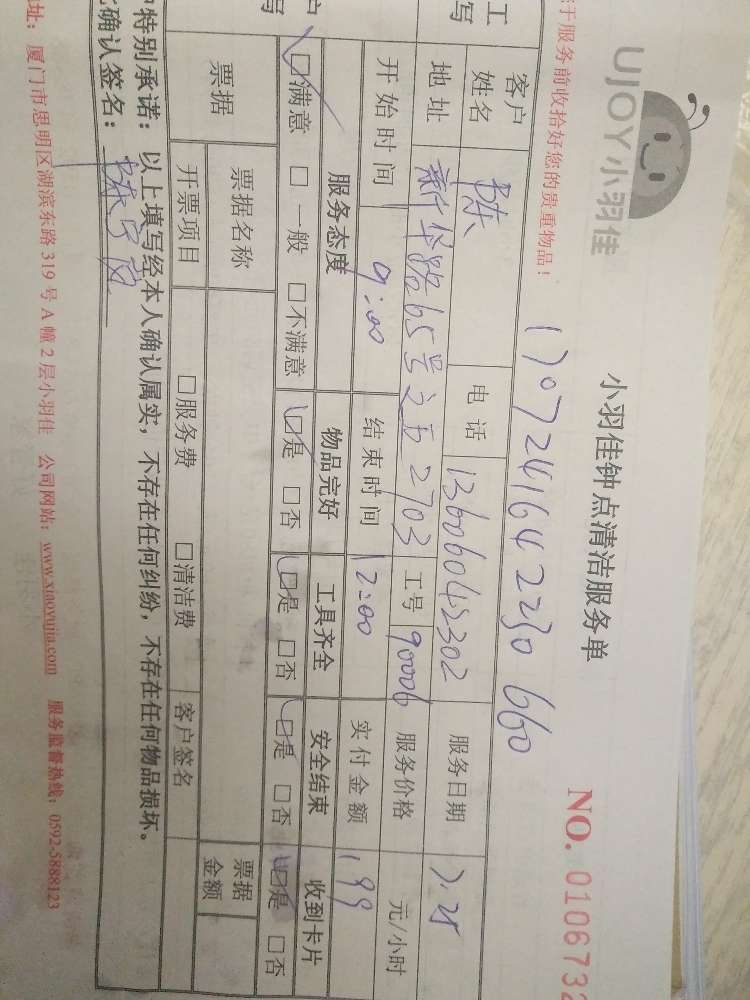 UJOY小羽佳
小羽佳钟点清洁服务单
NO. 0106732
于服务前收拾好您的贵重物品!
客户姓名 陈 电话 13606042302 服务日期 7.28
地址 新华路65号之五2703 工号 90006 服务价格 元/小时
开始时间 9:00 结束时间 12:00 实付金额 199
服务态度 物品完好 工具齐全 安全结束 收到卡片
□满意 □一般 □不满意 □是 □否 □是 □否 □是 □否 □是 □否
票据 票据名称 票据金额
开票项目 □服务费 □清洁费 客户签名
特别承诺:以上填写经本人确认属实,不存在任何纠纷,不存在任何物品损坏。
确认签名:
址:厦门市思明区湖滨东路319号A幢2层小羽佳 公司网站:www.xiaoyujia.com 服务监督热线:0592-5888123